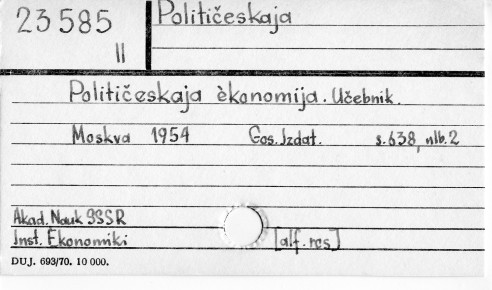 23585 Političeskaja
II
Političeskaja èkonomija. Učebnik.
Moskva 1954 Gos. Izdat. s. 638, nlb. 2
Akad. Nauk SSSR
Inst. Ekonomiki [alf. ros]
DUJ. 693/70. 10 000.